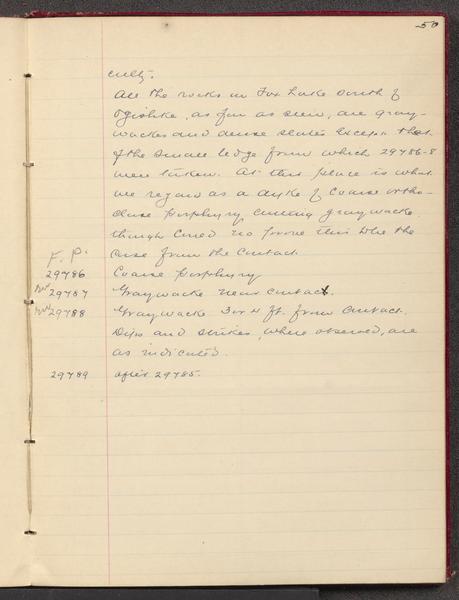 50
culty.
All the rocks in Fox Lake south of
Ogishke, as far as seen, are gray-
wackes and dense slates except that
of the small ledge from which 29786-8
were taken. At this place is what
we regard as a dyke of coarse ortho-
clase porphyry cutting graywacke,
though could no prove this to be the
F. P. case from the contact.
29786 Coarse porphyry
29787 Graywacke near contact.
29788 Graywacke 3 or 4 ft. from contact.
Dips and strikes, where observed, are
as indicated.
29789 after 29785.